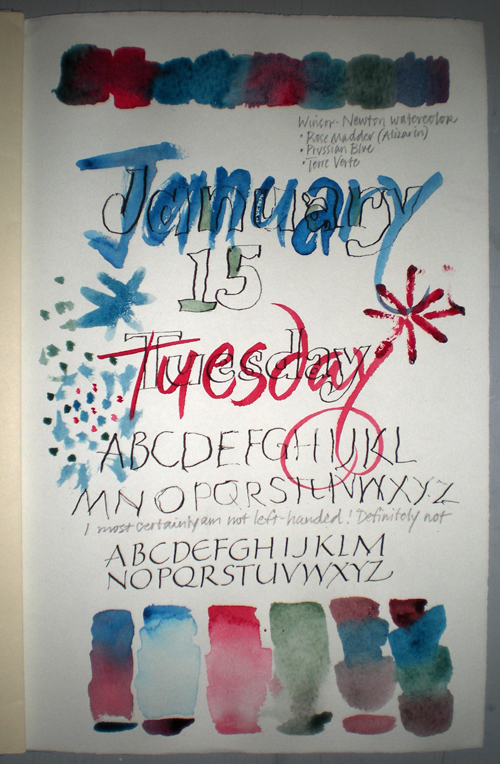 Winsor-Newton watercolor
• Rose Madder (Alizarin)
• Prussian Blue
• Terre Verte
January
15
Tuesday
ABCDEFGHIJKL
MNOPQRSTUVWXYZ
I most certainly am not left-handed! Definitely not
ABCDEFGHIJKLM
NOPQRSTUVWXYZ